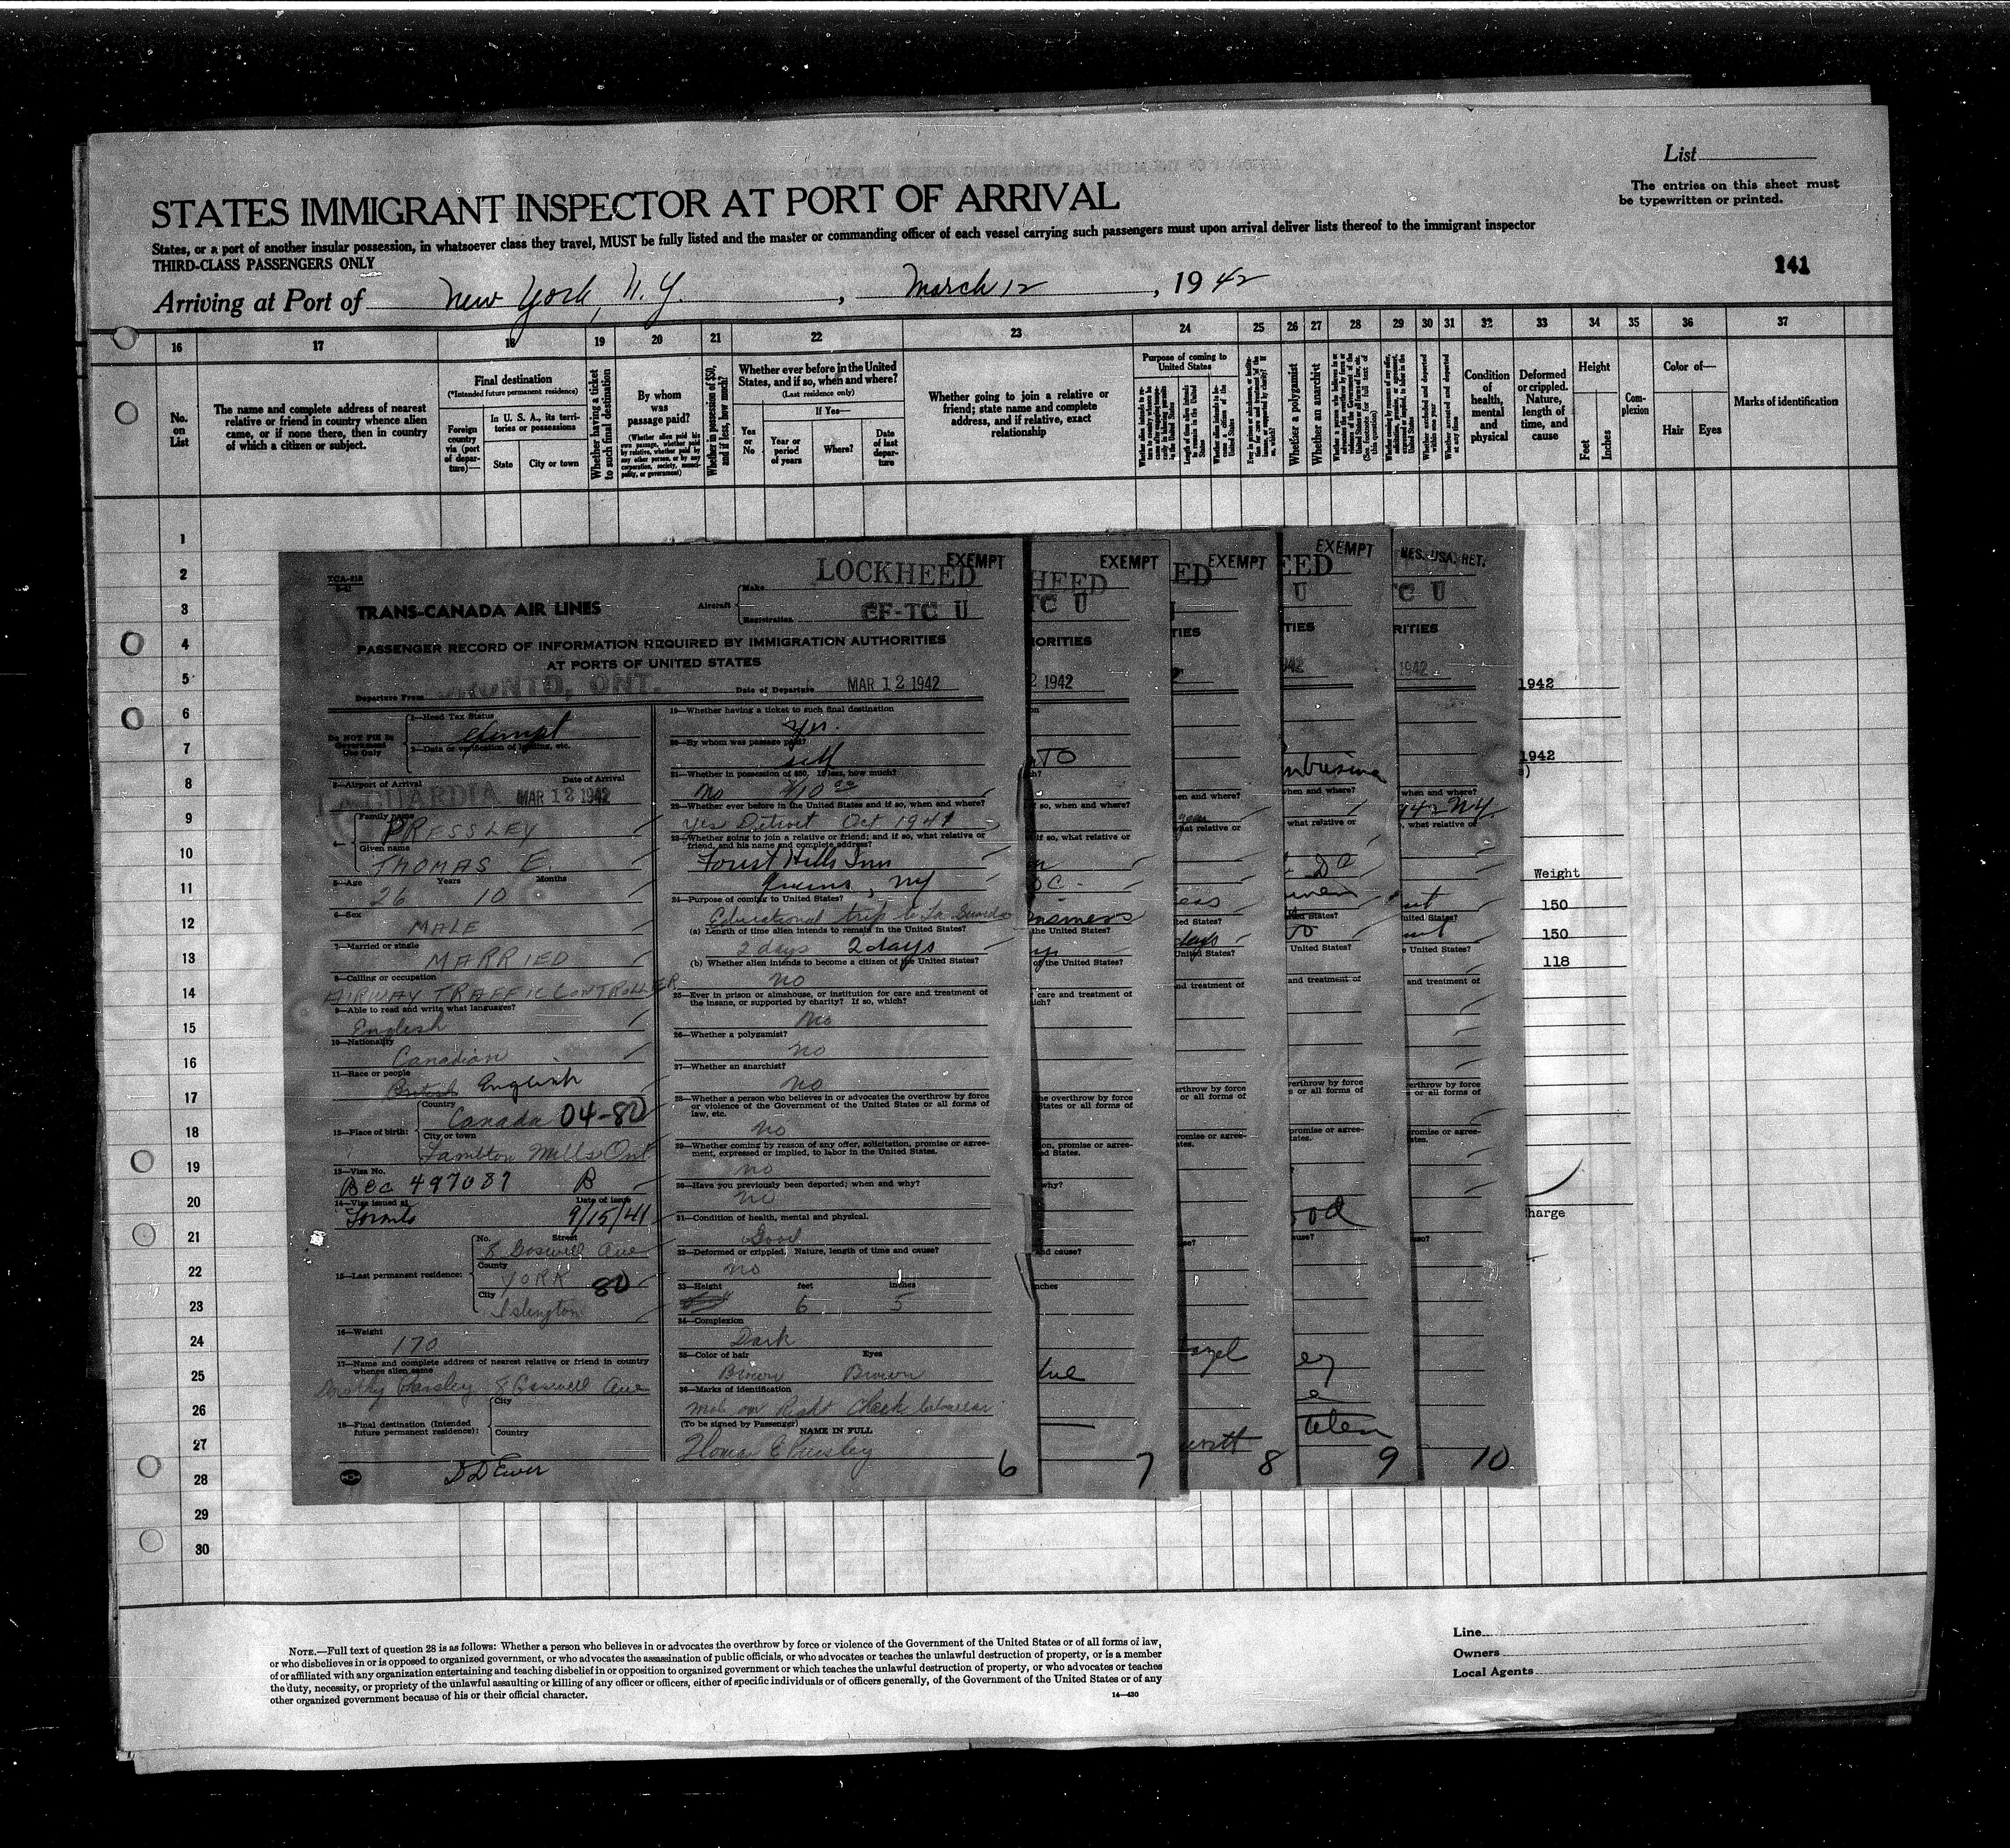 List
The entries on this sheet must
be typewritten or printed.
STATES IMMIGRANT INSPECTOR AT PORT OF ARRIVAL
States, or a port of another insular possession, in whatsoever class they travel, MUST be fully listed and the master or commanding officer of each vessel carrying such passengers must upon arrival deliver lists thereof to the immigrant inspector
THIRD-CLASS PASSENGERS ONLY
141
Arriving at Port of New York, N.Y., March 12, 1942
16 17 18 19 20 21 22 23 24 25 26 27 28 29 30 31 32 33 34 35 36 37
No. on List
The name and complete address of nearest relative or friend in country whence alien came, or if none there, then in country of which a citizen or subject.
Final destination
(*Intended future permanent residence)
Foreign country via (port of departure)—
In U. S. A., its territories or possessions
State
City or town
Whether having a ticket to such final destination
By whom was passage paid?
(Whether alien paid his own passage, whether paid by relative, whether paid by any other person, or by any corporation, society, municipality, or government)
Whether in possession of $50, and if less, how much?
Whether ever before in the United States, and if so, when and where?
(Last residence only)
Yes or No
If Yes—
Year or period of years
Where?
Date of last departure
Whether going to join a relative or friend; state name and complete address, and if relative, exact relationship
Purpose of coming to United States
Length of time alien intends to remain in the United States
Whether alien intends to become a citizen of the United States
Whether a polygamist
Whether an anarchist
Condition of health, mental and physical
Deformed or crippled. Nature, length of time, and cause
Height
Feet
Inches
Complexion
Color of—
Hair
Eyes
Marks of identification
1
2
3
4
5
6
7
8
9
10
11
12
13
14
15
16
17
18
19
20
21
22
23
24
25
26
27
28
29
30
TCA-218
LOCKHEED
EXEMPT
TRANS-CANADA AIR LINES
Aircraft
Make
Registration
CF-TC U
PASSENGER RECORD OF INFORMATION REQUIRED BY IMMIGRATION AUTHORITIES
AT PORTS OF UNITED STATES
Departure From TORONTO, ONT.
Date of Departure MAR 12 1942
Do NOT Fill In Government Use Only
1—Head Tax Status
exempt
2—Data or verification of landing, etc.
3—Airport of Arrival
Date of Arrival
LA GUARDIA MAR 12 1942
Family name
PRESSLEY
Given name
THOMAS E.
5—Age Years Months
26 10
6—Sex
MALE
7—Married or single
MARRIED
8—Calling or occupation
AIRWAY TRAFFIC CONTROLLER
9—Able to read and write what languages?
English
10—Nationality
Canadian
11—Race or people
British English
12—Place of birth:
Country
Canada 04-80
City or town
Lambton Mills Ont
13—Visa No.
BCC 497087 B
14—Visa issued at Date of issue
Toronto 9/15/41
15—Last permanent residence:
No. Street
8 Goswell Ave
County
YORK 80
City
Islington
16—Weight
170
17—Name and complete address of nearest relative or friend in country whence alien came
Dorothy Pressley 8 Goswell Ave
18—Final destination (Intended future permanent residence):
City
Country
19—Whether having a ticket to such final destination
Yes.
20—By whom was passage paid?
self
21—Whether in possession of $50, if less, how much?
no $10.00
22—Whether ever before in the United States and if so, when and where?
Yes Detroit Oct 1941
23—Whether going to join a relative or friend; and if so, what relative or friend, and his name and complete address?
Forest Hills Inn
Queens, NY
24—Purpose of coming to United States?
Educational trip to La Guardia
(a) Length of time alien intends to remain in the United States?
2 days 2 days
(b) Whether alien intends to become a citizen of the United States?
no
25—Ever in prison or almshouse, or institution for care and treatment of the insane, or supported by charity? If so, which?
No
26—Whether a polygamist?
no
27—Whether an anarchist?
no
28—Whether a person who believes in or advocates the overthrow by force or violence of the Government of the United States or all forms of law, etc.
no
29—Whether coming by reason of any offer, solicitation, promise or agreement, expressed or implied, to labor in the United States.
no
30—Have you previously been deported; when and why?
no
31—Condition of health, mental and physical.
Good
32—Deformed or crippled. Nature, length of time and cause?
no
33—Height feet inches
6 5
34—Complexion
Dark
35—Color of hair Eyes
Brown Brown
36—Marks of identification
mole on Right Cheek
(To be signed by Passenger)
NAME IN FULL
Thomas E Pressley
6
EXEMPT
7
EXEMPT
8
EXEMPT
9
RES. USA. RET.
10
1942
1942
Weight
150
150
118
harge
NOTE.—Full text of question 28 is as follows: Whether a person who believes in or advocates the overthrow by force or violence of the Government of the United States or of all forms of law,
or who disbelieves in or is opposed to organized government, or who advocates the assassination of public officials, or who advocates or teaches the unlawful destruction of property, or is a member
of or affiliated with any organization entertaining and teaching disbelief in or opposition to organized government or which teaches the unlawful destruction of property, or who advocates or teaches
the duty, necessity, or propriety of the unlawful assaulting or killing of any officer or officers, either of specific individuals or of officers generally, of the Government of the United States or of any
other organized government because of his or their official character.
14—430
Line
Owners
Local Agents